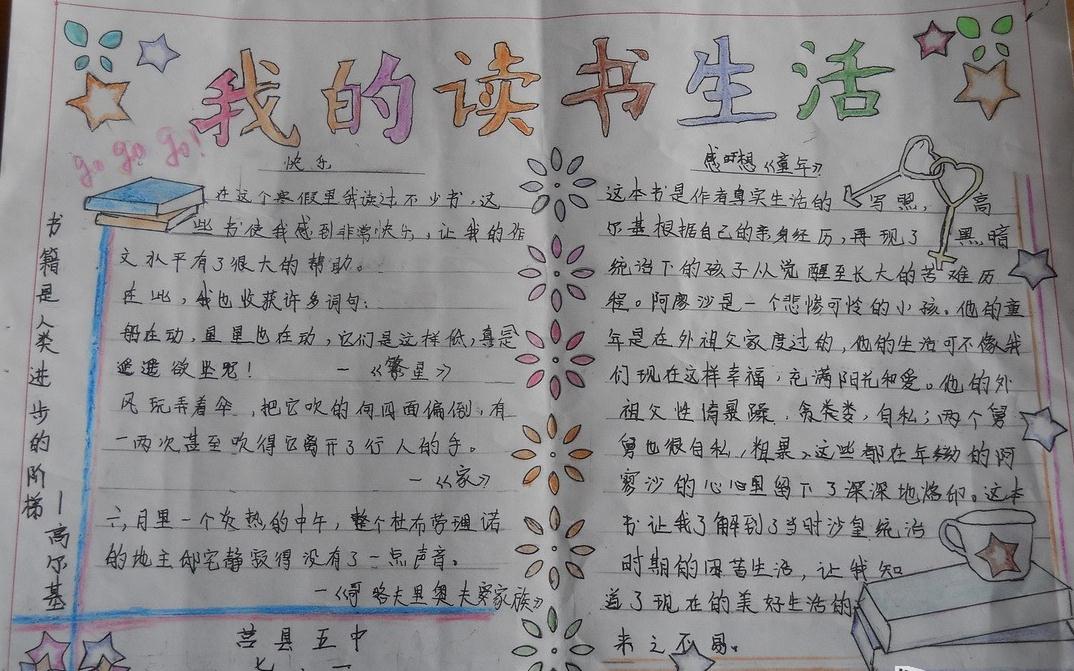 我的读书生活
go go go!
书籍是人类进步的阶梯
—高尔基
快乐
在这个寒假里我读过不少书,这
些书使我感到非常快乐,让我的作
文水平有了很大的帮助。
在此,我也收获许多词句:
船在动,星星也在动,它们是这样低,真是
遥遥欲坠呢! —《繁星》
风玩弄着伞,把它吹的向四面偏倒,有
一两次甚至吹得它离开了行人的手。
—《家》
六月里一个炎热的中午,整个杜布劳理诺
的地主邸宅静寂得没有了一点声音。
—《哥略夫里奥夫家族》
莒县五中
感想《童年》
这本书是作者真实生活的写照,高
尔基根据自己的亲身经历,再现了黑暗
统治下的孩子从觉醒至长大的苦难历
程。阿廖沙是一个悲惨可怜的小孩。他的童
年是在外祖父家度过的,他的生活可不像我
们现在这样幸福,充满阳光和爱。他的外
祖父性情暴躁、贪类娄,自私;两个舅
舅也很自私,粗暴。这些都在年幼的阿
廖沙的心心里留下了深深地烙印。这本
书让我了解到了当时沙皇统治
时期的困苦生活,让我知
道了现在的美好生活的
来之不易。